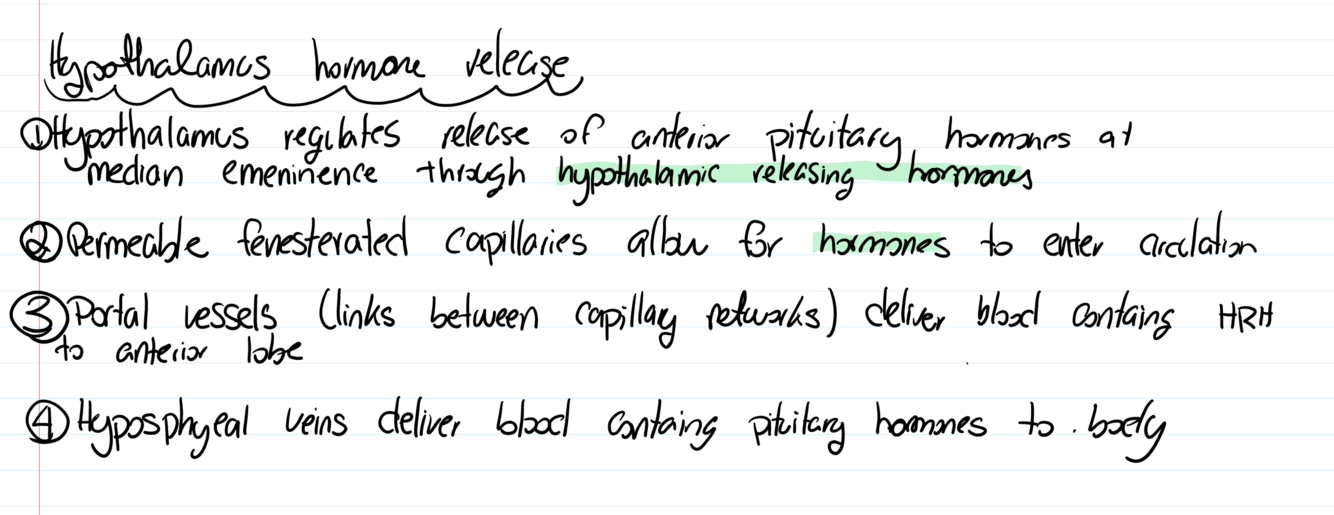 Hypothalamus hormone release
①Hypothalamus regulates release of anterior pituitary hormones at
median emeninence through hypothalamic releasing hormones
②Permeable fenesterated capillaries allow for hormones to enter circulation
③Portal vessels (links between capillary networks) deliver blood containg HRH
to anterior lobe
④Hyposphyeal veins deliver blood containg pituitary hormones to body